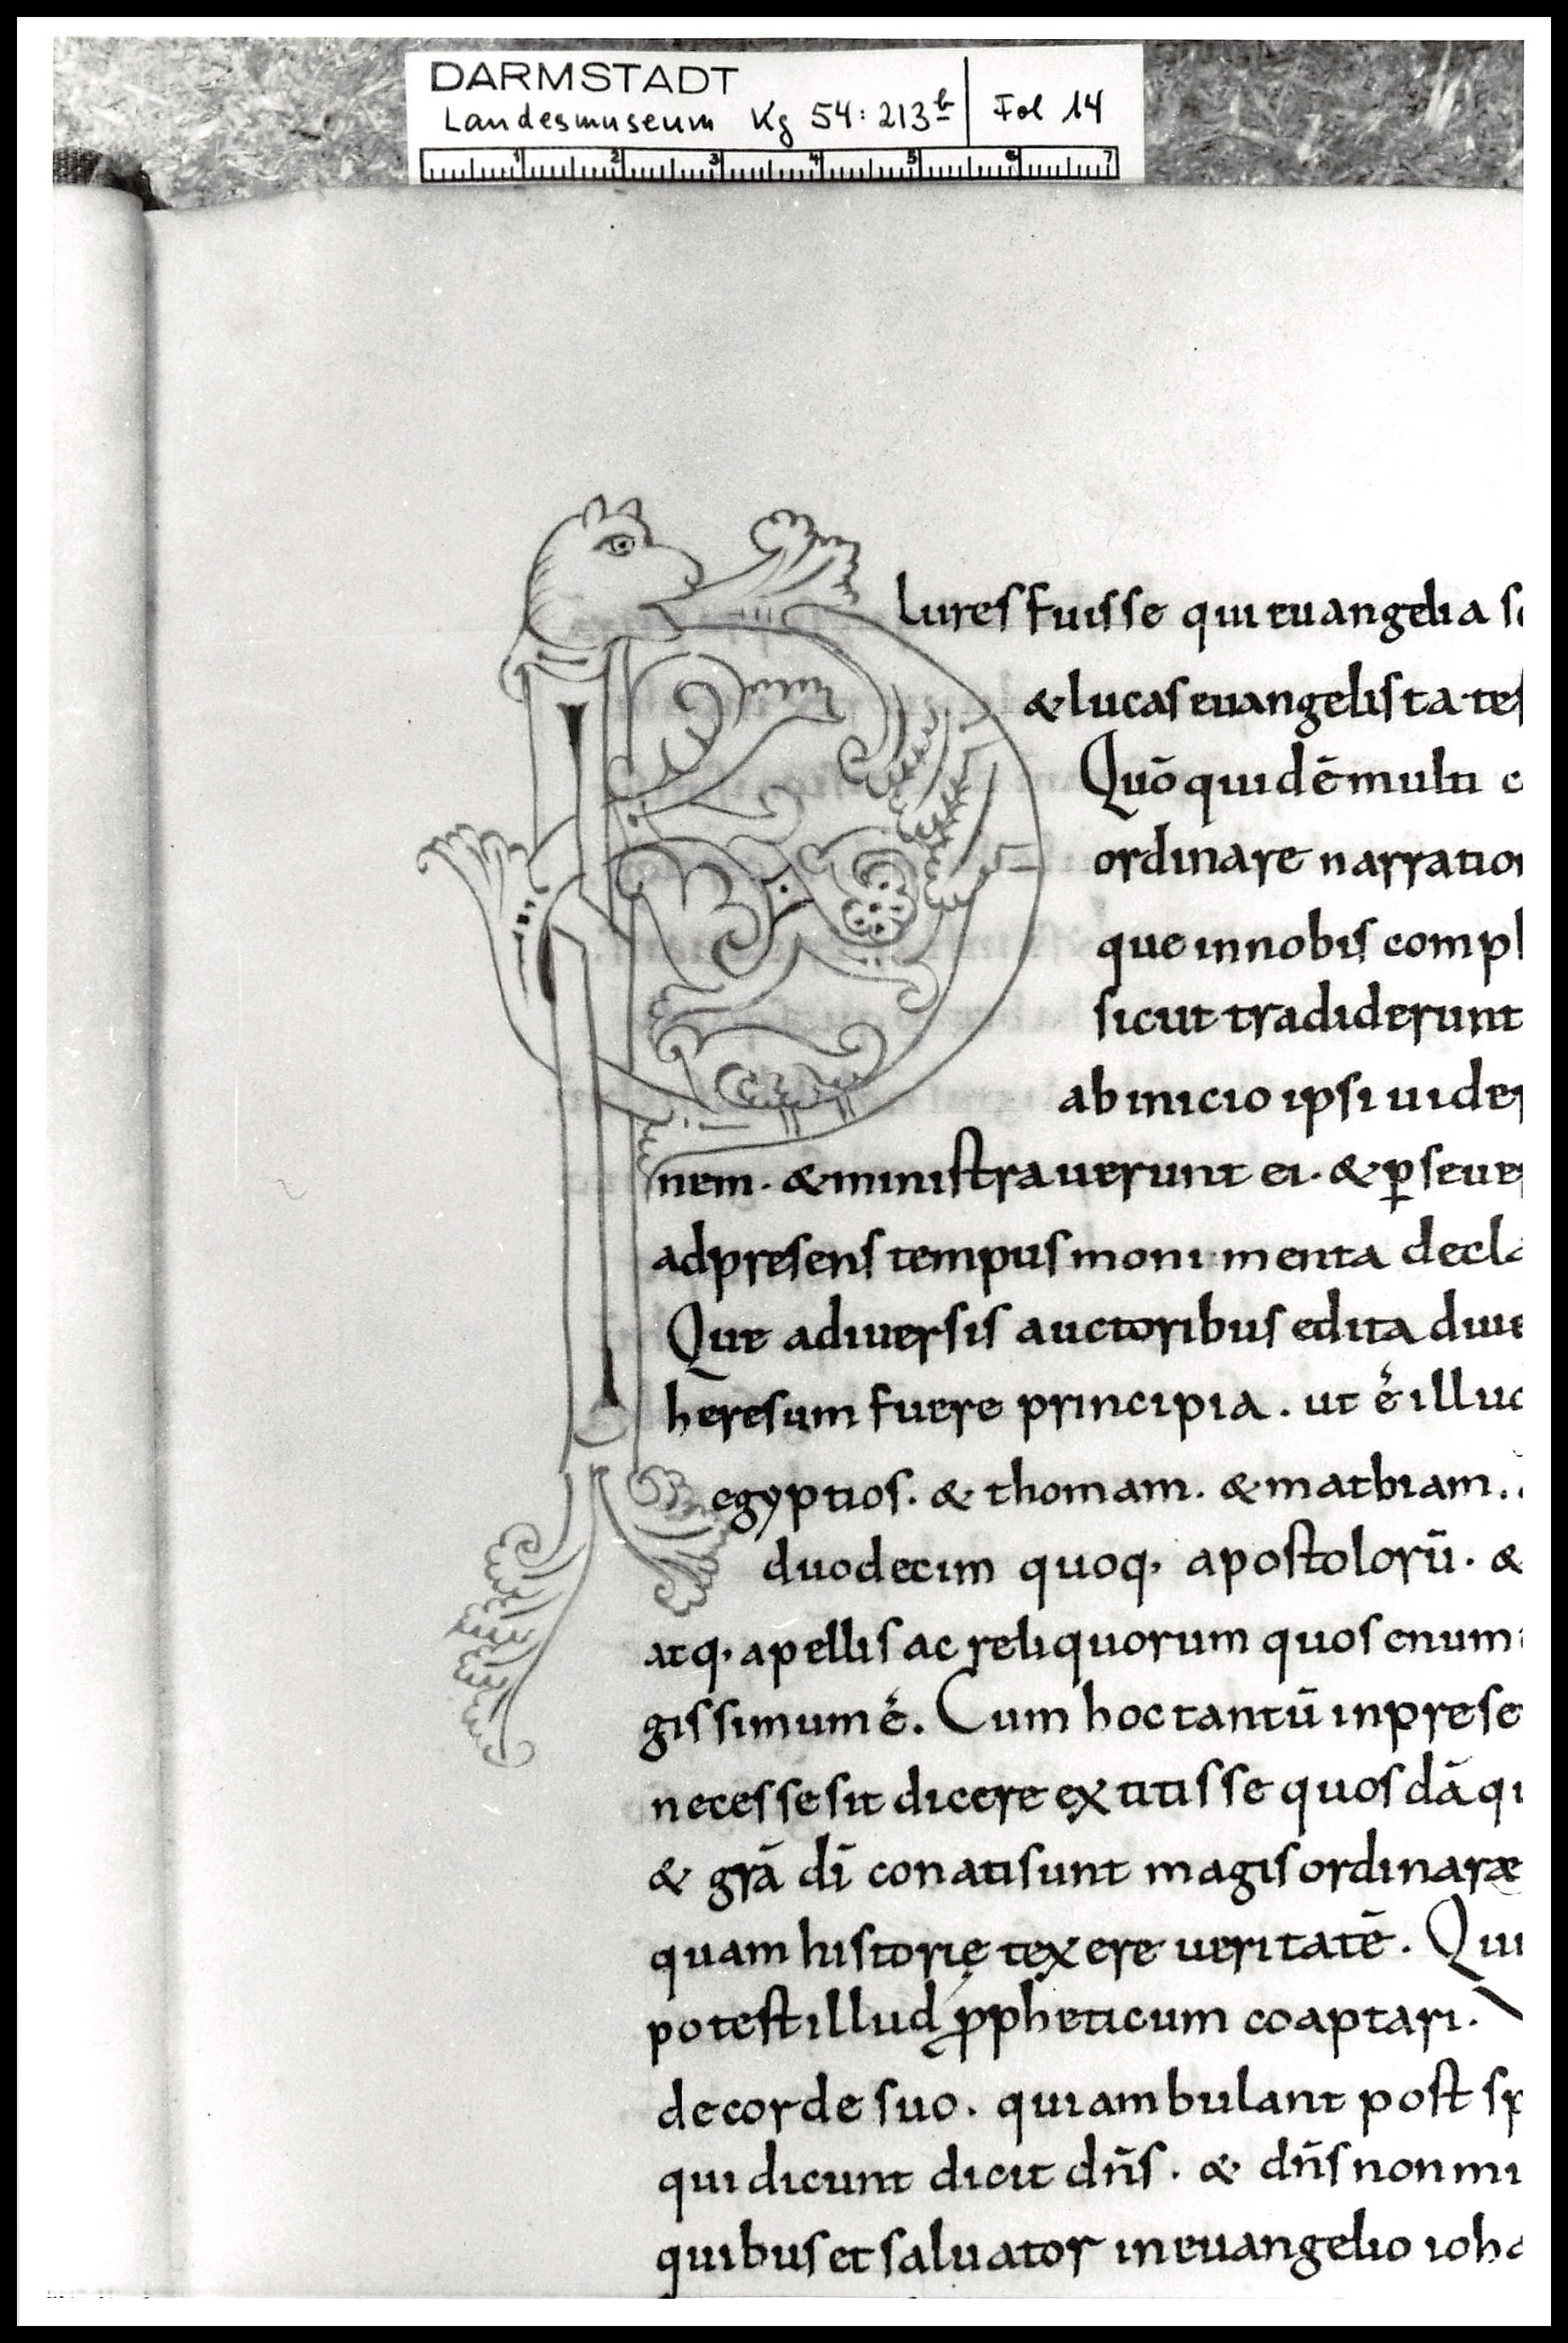 DARMSTADT
Landesmuseum Kg 54:213b | Fol 14
1 2 3 4 5 6 7
Plures fuisse qui euangelia sc
& lucas euangelista tes
Quō quidē multi c
ordinare narration
que in nobis compl
sicut tradiderunt
ab inicio ipsi uider
nem. & ministrauerunt ei. & p̱seuer
ad presens tempus monimenta decla
Que a diuersis auctoribus edita diue
heresum fuere principia. ut ē illud
egyptios. & thomam. & mathiam.
duodecim quoq, apostolorū. &
atq, apellis ac reliquorum quos enum
gissimum ē. Cum hoc tantū in prese
necesse sit dicere extitisse quosdā qu
& grā dī conati sunt magis ordinaræ
quam historię texere ueritatē. Qui
potest illud ꝓpheticum coaptari.
de corde suo. qui ambulant post sp
qui dicunt dicit dn̄s. & dn̄s non mi
quibus et saluator in euangelio ioha